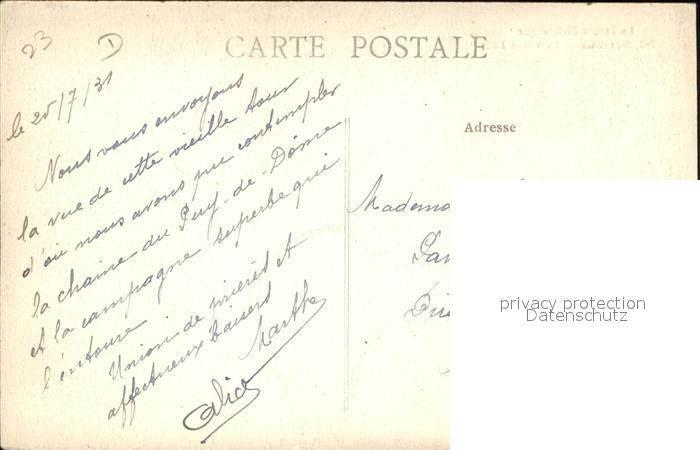 23
D
CARTE POSTALE
le 25/7/31
Nous vous envoyons
la vue de cette vieille tour
d'où nous avons pu contempler
la chaine du Puy-de-Dôme
et la campagne superbe qui
l'entoure.
Union de prières et
affectueux baisers
Marthe
Alice
Adresse
Madem
privacy protection
Datenschutz